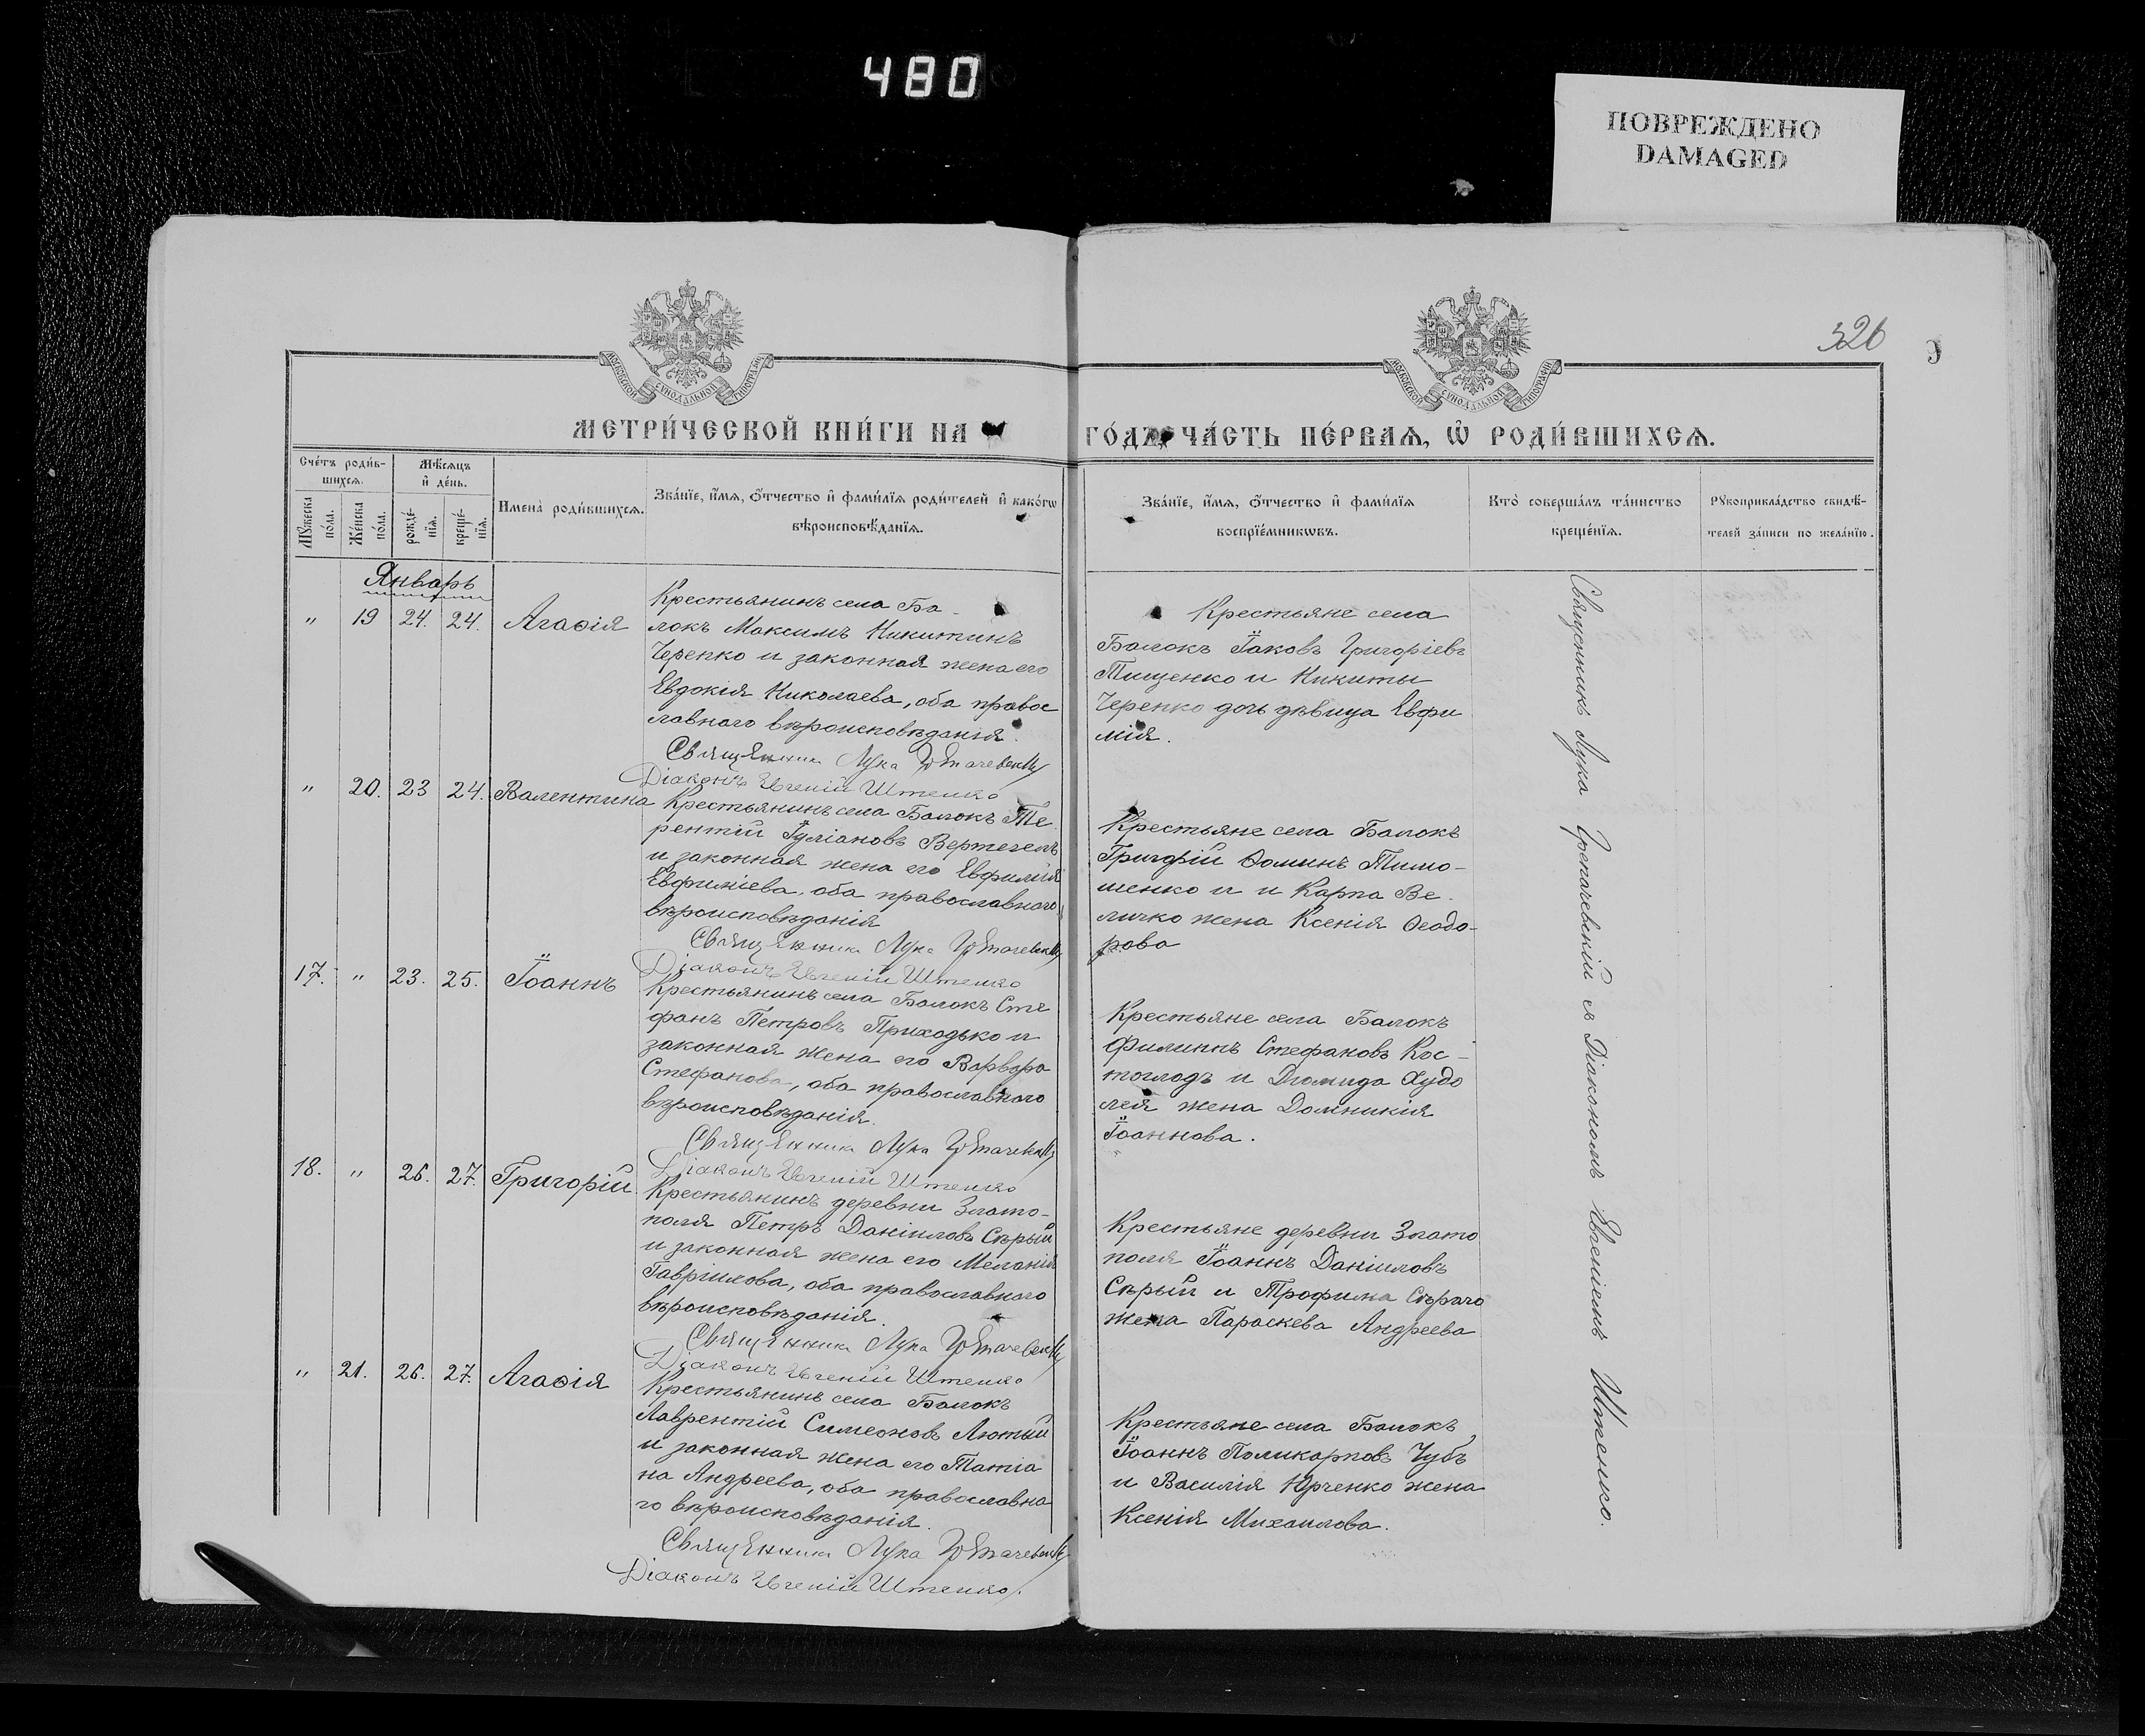 480
ПОВРЕЖДЕНО
DAMAGED
326
МОСКОВСКОЙ СѴНОДАЛЬНОЙ ТИПОГРАФІИ
МОСКОВСКОЙ СѴНОДАЛЬНОЙ ТИПОГРАФІИ
МЕТРИ́ЧЕСКОЙ КНИ́ГИ НА
ГО́ДЪ ЧА́СТЬ ПЕ́РВАѦ, Ѡ҆ РОДИ́ВШИХСѦ.
Сче́тъ роди́в-
шихсѧ.
Мѣ́сѧцъ
и҆ де́нь.
Мꙋ́жеска
по́ла.
Же́нска
по́ла.
рожде́-
нїѧ.
креще́-
нїѧ.
Имена̀ роди́вшихсѧ.
Зва́нїе, и҆́мѧ, ѻ҆́тчество и҆ фами́лїѧ роди́телей и҆ како́гѡ
вѣроисповѣ́данїѧ.
Зва́нїе, и҆́мѧ, ѻ҆́тчество и҆ фами́лїѧ
воспрїе́мникѡвъ.
Кто̀ соверша́лъ та́инство
креще́нїѧ.
Рꙋкоприкла́дство свидѣ́-
телей за́писи по жела́нїю.
Январь
" 19 24. 24. Агаѳія
Крестьянинъ села Ба-
локъ Максимъ Никитинъ
Черепко и законная жена его
Евдокія Николаева, оба правос
лавного вѣроисповѣданія.
Священникъ Лука
Діаконъ Евгеній Штепко
Крестьяне села
Балокъ Іаковъ Григоріевъ
Тищенко и Никиты
Черепко дочь дѣвица Евфи
мія.
" 20. 23 24. Валентина
Крестьянинъ села Балокъ Те
рентій Іуліановъ Вертегелъ
и законная жена его Евфимія
Евфиміева, оба православного
вѣроисповѣданія
Священникъ Лука
Діаконъ Евгеній Штепко
Крестьяне села Балокъ
Григорій Ѳоминъ Тимо-
шенко и и Карпа Ве-
личко жена Ксенія Ѳеодо-
рова
17. " 23. 25. Іоаннъ
Крестьянинъ села Балокъ Сте
фанъ Петровъ Приходько и
законная жена его Варвара
Стефанова, оба православного
вѣроисповѣданія.
Священникъ Лука
Діаконъ Евгеній Штепко
Крестьяне села Балокъ
Филиппъ Стефановъ Кос-
тоглодъ и Діомида Худо
лея жена Домникія
Іоаннова.
18. " 26. 27. Григорій
Крестьянинъ деревни Злато-
поля Петръ Даніиловъ Сѣрый
и законная жена его Меланія
Гавріилова, оба православного
вѣроисповѣданія.
Священникъ Лука
Діаконъ Евгеній Штепко
Крестьяне деревни Злато
поля Іоаннъ Даніиловъ
Сѣрый и Трофима Сѣраго
жена Параскева Андреева
" 21. 26. 27. Агаѳія
Крестьянинъ села Балокъ
Лаврентій Симеоновъ Лютый
и законная жена его Татіа
на Андреева, оба православна
го вѣроисповѣданія.
Священникъ Лука
Діаконъ Евгеній Штепко.
Крестьяне села Балокъ
Іоаннъ Поликарповъ Чубъ
и Василія Юрченко жена
Ксенія Михаилова.
Священникъ Лука съ Діакономъ Евгеніемъ Штепко.